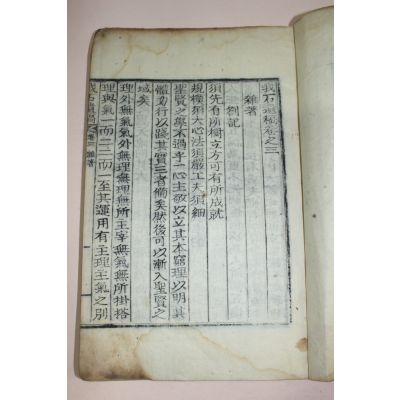 我石遺稿卷之三
雜著
劄記
須先有所樹立方可有所成就
規模須大心法須嚴工夫須細
聖賢之學不過乎一心主敬以立其本窮理以明其
體動行以踐其實三者備矣然後可以漸入聖賢之
域矣
理外無氣氣外無理無理無所主宰無氣無所掛搭
理與氣一而二二而一至其運用有主理主氣之別
我石遺稿 卷三 雜著 一